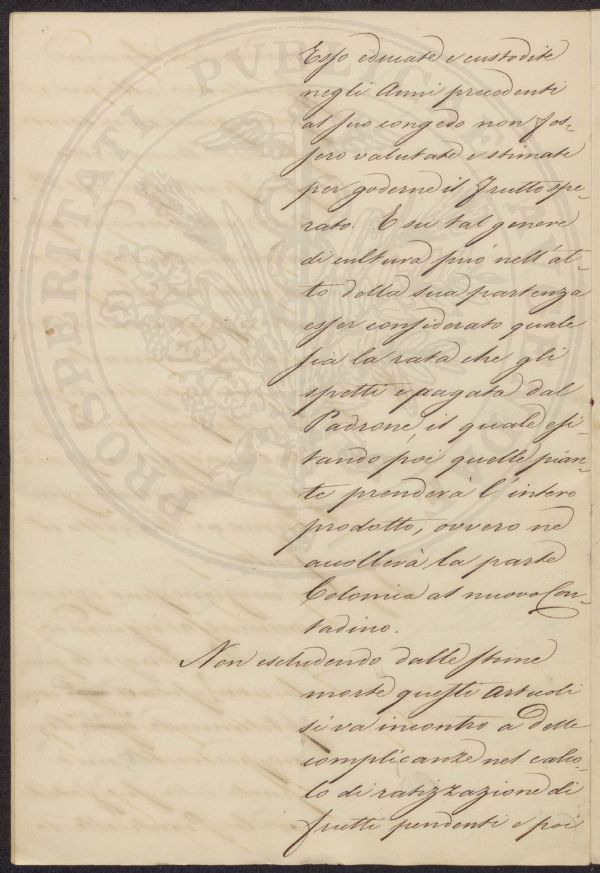 Esso educate e custodite
negli Anni precedenti
al suo congedo non fos-
sero valutate e stimate
per goderne il frutto spe-
rato. E su tal genere
di cultura può nell'at-
to della sua partenza
esser considerato quale
sia la rata che gli
spetti e pagata dal
Padrone, il quale esi-
tando poi quelle pian-
te prenderà l'intero
prodotto, ovvero ne
accollerà la parte
Colonica al nuovo Con-
tadino.
Non escludendo dalle stime
morte questi Articoli
si va incontro a delle
complicanze nel calco-
lo di ratizzazione di
frutti pendenti e poi
PROSPERITATI PVBLICAE